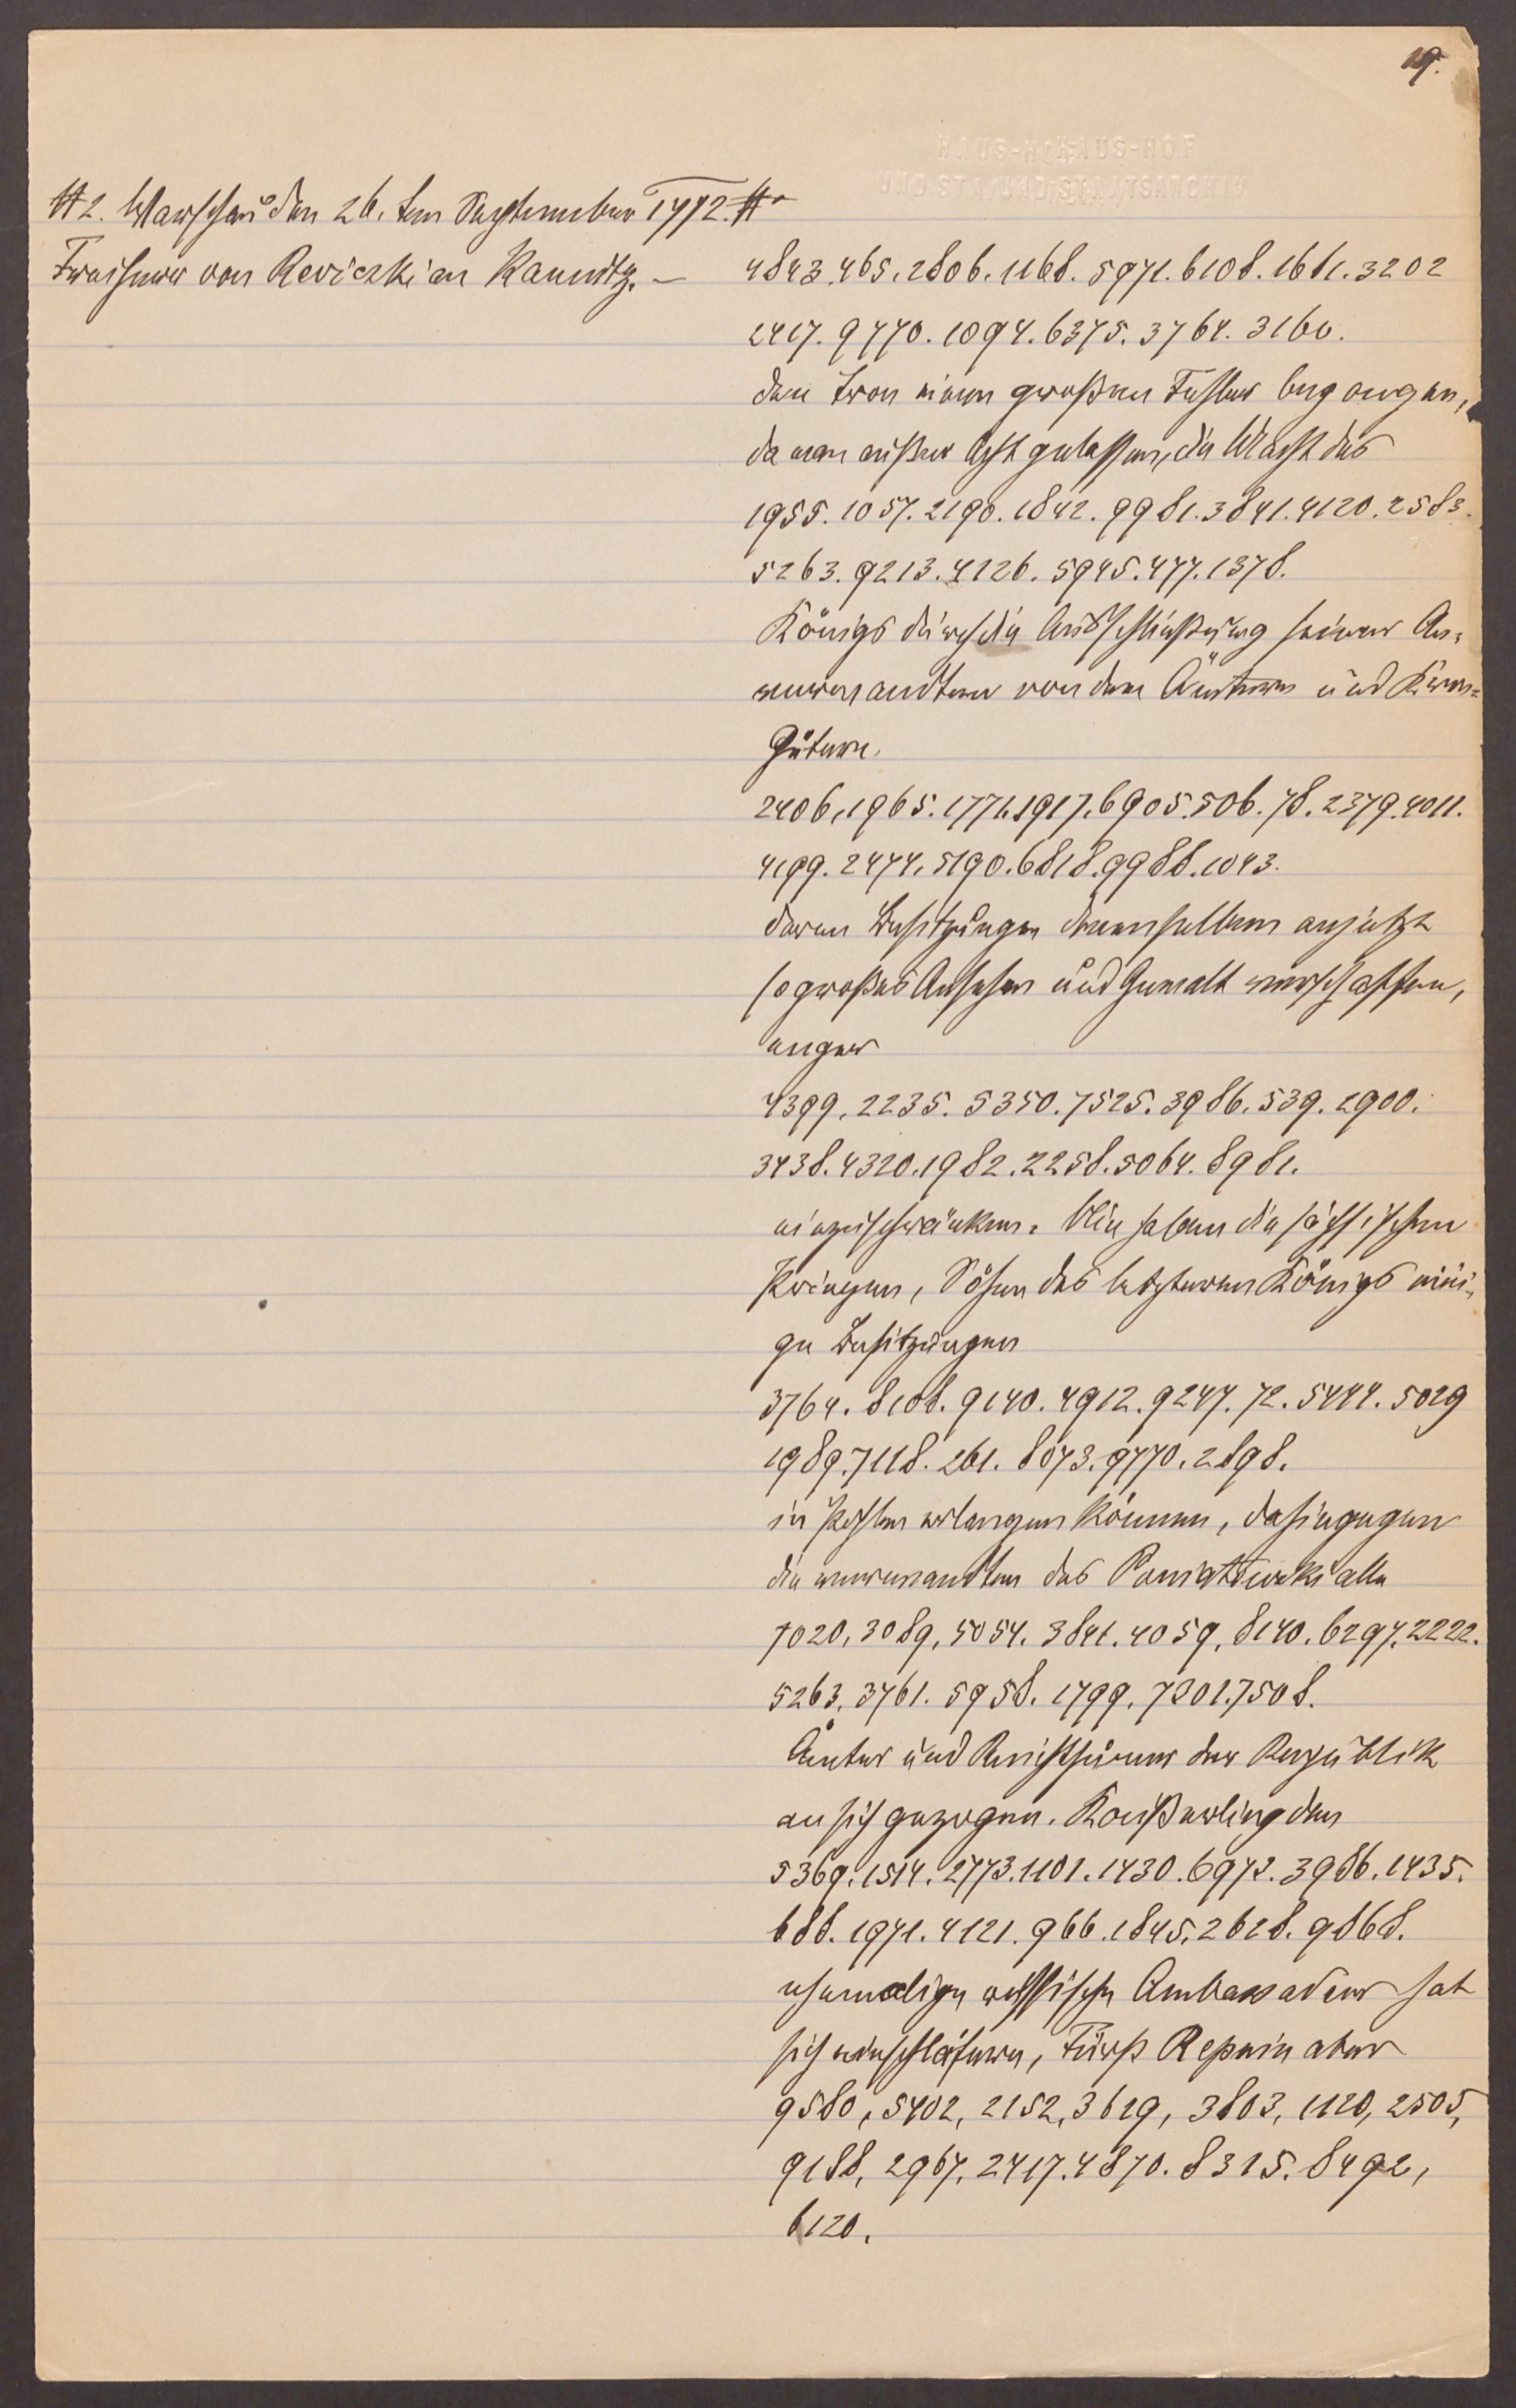 19.
HAUS-HOF
UND STAATSARCHIV
# 2. Warschau den 26. ten September 1772. #
Freiherr von Reviczki an Kaunitz. —
4843.465.2806.1168.5971.6108.1661.3202
2417.9770.1094.6375.3764.3160.
den Tron einen großen Fehler begangen,
da man außer Acht gelassen, die Macht des
1955.1057.2190.1842.9981.3841.4120.2583.
5263.9213.4126.5945.477.1378.
Königs durch die Ausschließung seiner An-
verwandten von den Ämtern und Kron-
Gütern.
2406.1965.1771.1917.6905.506.78.2379.4011.
4199.2474.5190.6818.9988.1043.
deren Besitzungen demselben anjetzt
so großes Ansehen und Gewalt verschaffen,
enger
4399.2235.5350.7525.3986.539.2900.
3438.4320.1982.2258.5064.8981.
einzuschränken. Nie haben die sächsischen
Prinzen, Söhne des letzteren Königs eini-
ge Besitzungen
3764.8108.9140.4912.9247.72.5444.5029
1989.7118.261.8073.9770.2898.
in Pohlen erlangen können, dahingegen
die verwandten des Poniatowski alle
7020,3089,5054.3841.4059,8140.6297.2222.
5263,3761.5958.1799.7201.7508.
Ämter und Reichthümer der Republik
an sich gezogen. Kaißerling den
5369.1514.2773.1101.1430.6972.3986.1435.
688.1971.4121.966.1845.2628.9868.
ehemalige russische Ambassadeur hat
sich einschläfern, Fürst Repnin aber
9580,5402,2152,3619,3803,1120,2505,
9188,2967,2417.4870.8315.8492,
6120.